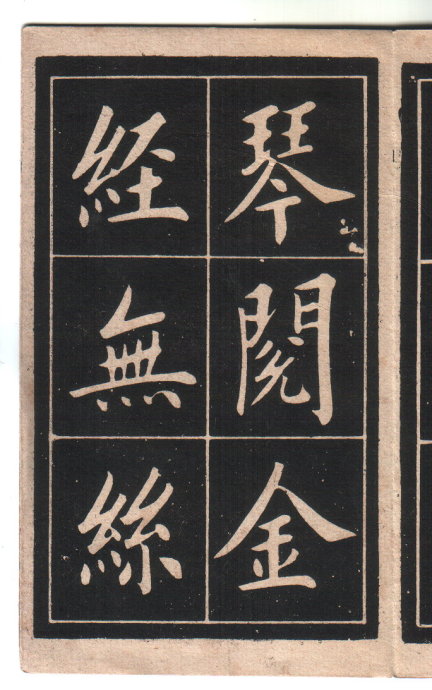 琴閱金
経無絲